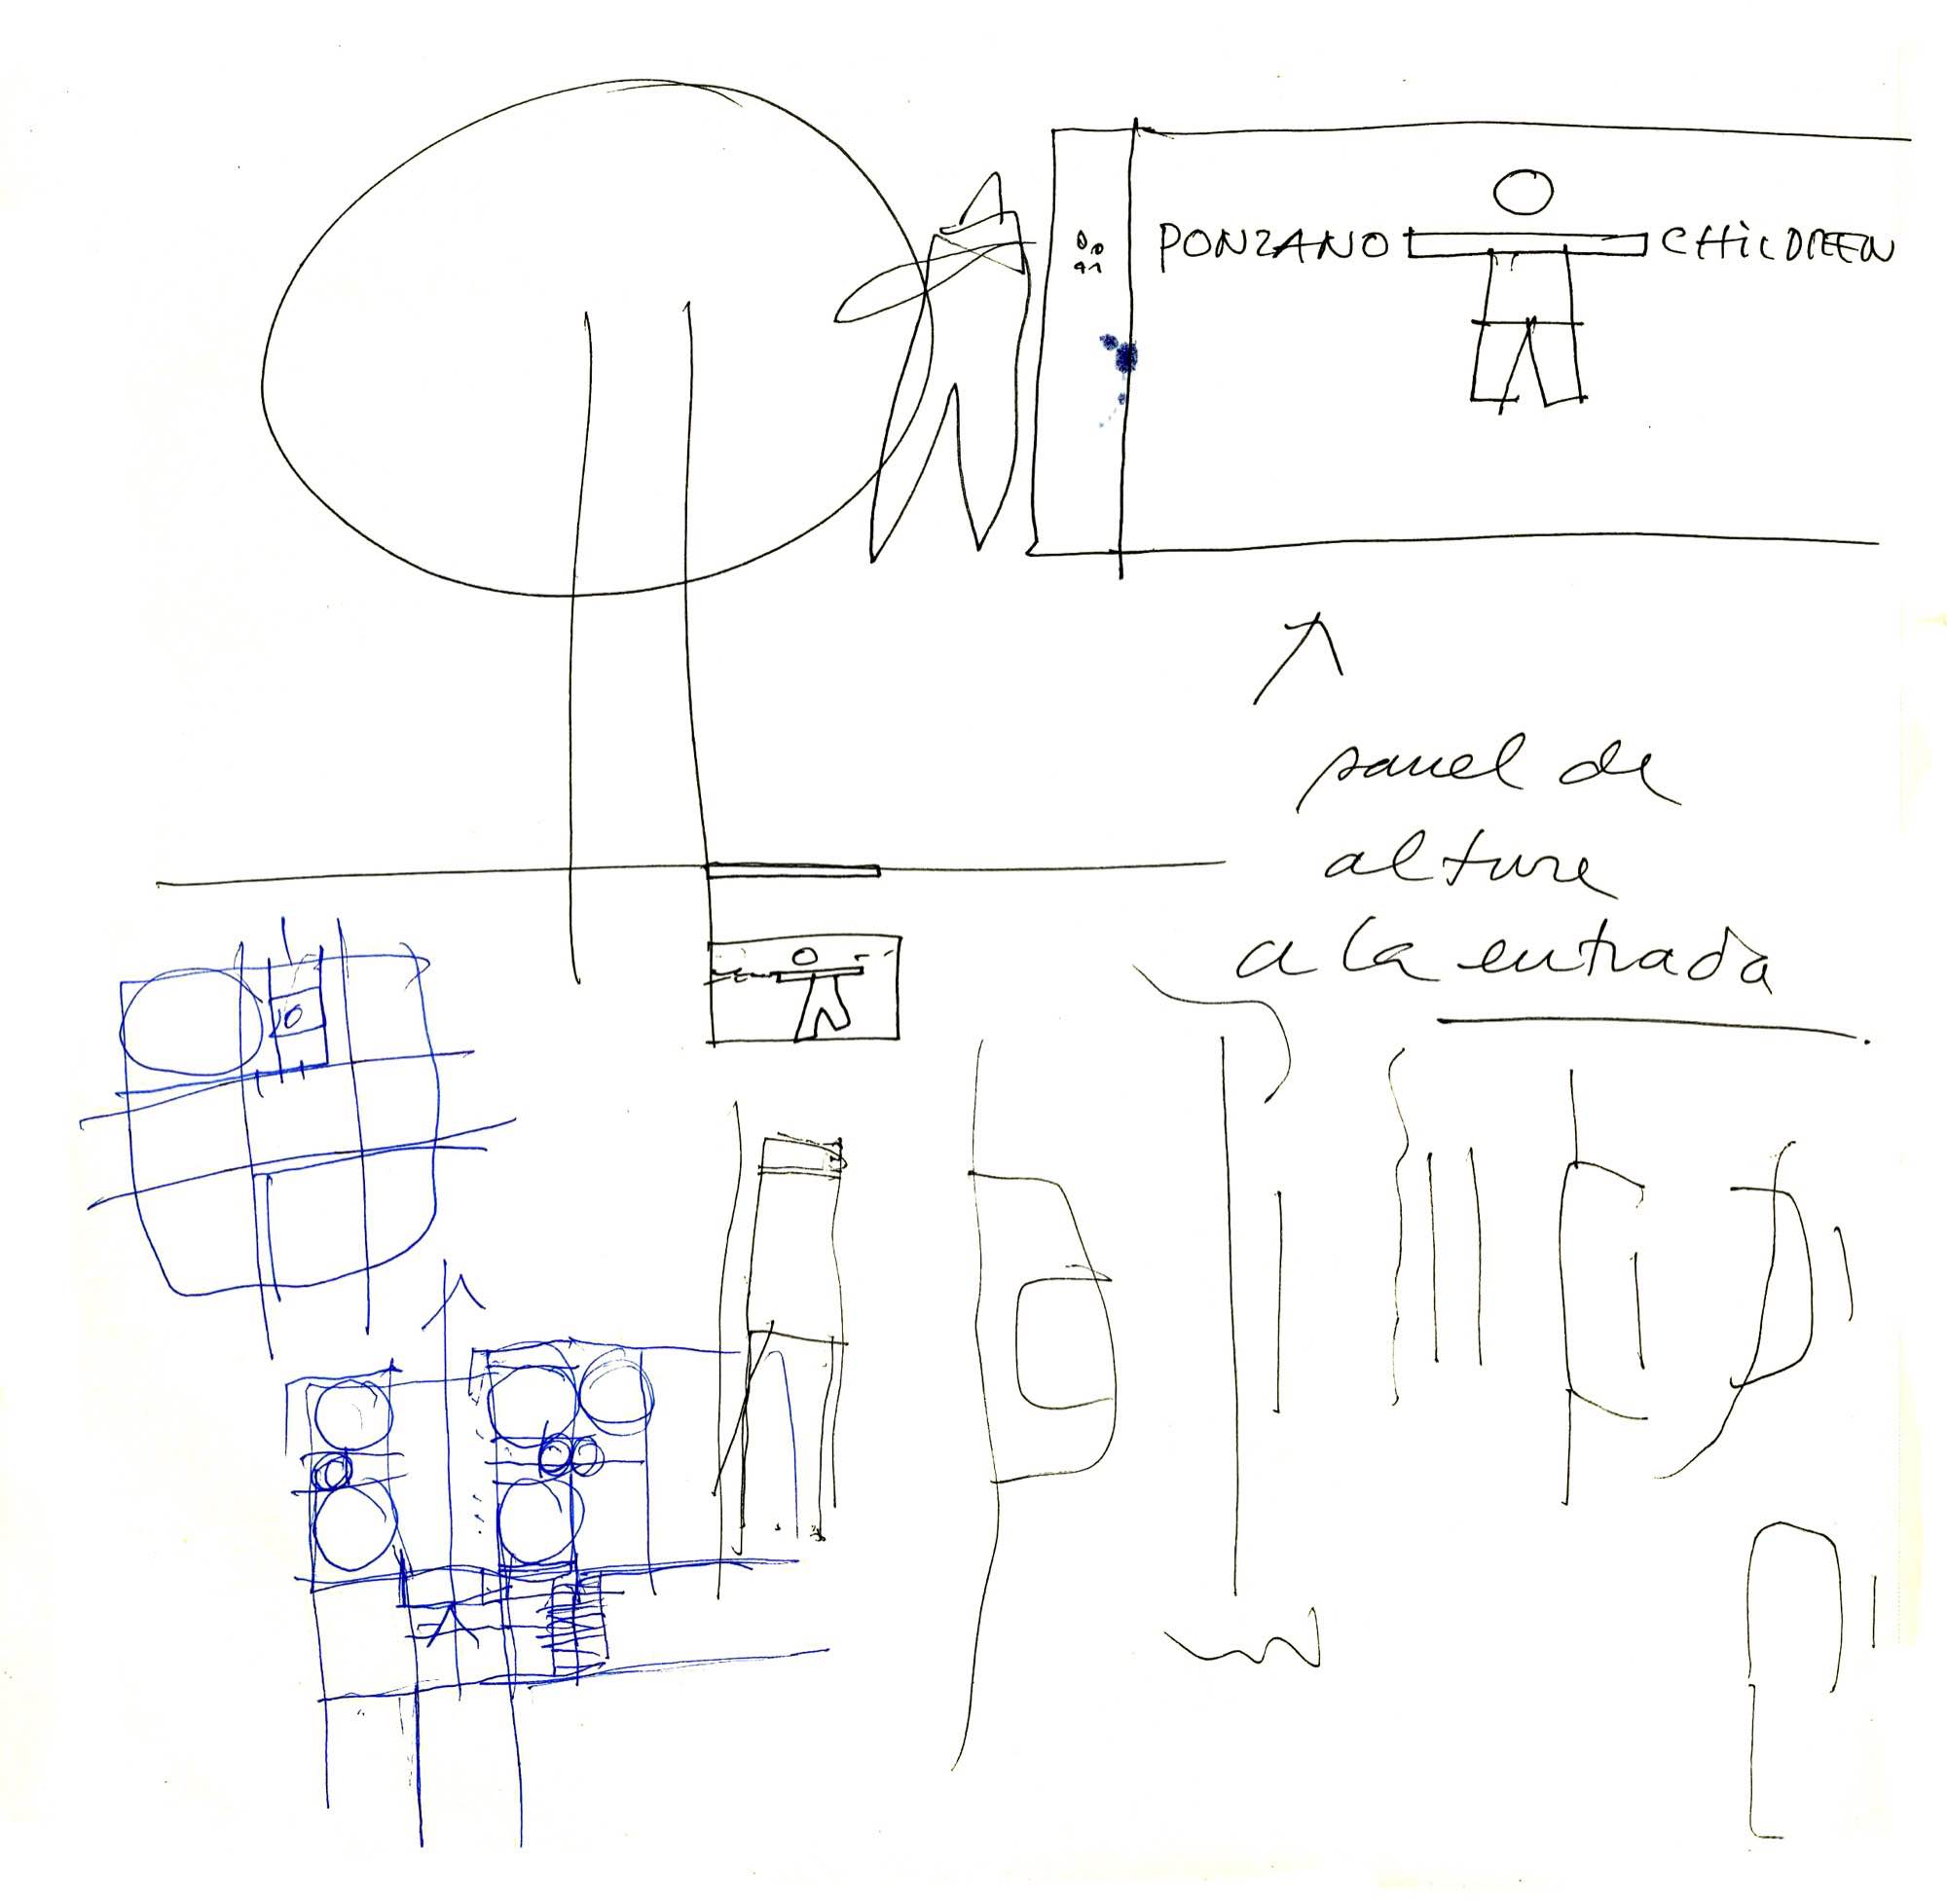 PONZANO CHiLDREEN
panel de
altura
a la entrada